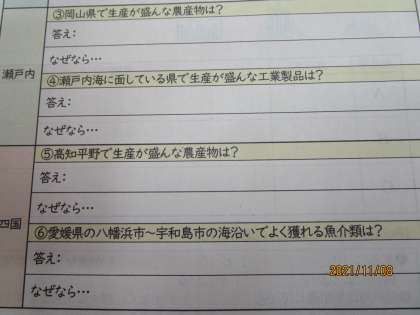 ③岡山県で生産が盛んな農産物は？
答え：
なぜなら…
瀬戸内
④瀬戸内海に面している県で生産が盛んな工業製品は？
答え：
なぜなら…
⑤高知平野で生産が盛んな農産物は？
答え：
なぜなら…
四国
⑥愛媛県の八幡浜市～宇和島市の海沿いでよく獲れる魚介類は？
答え：
2021/11/08
なぜなら…